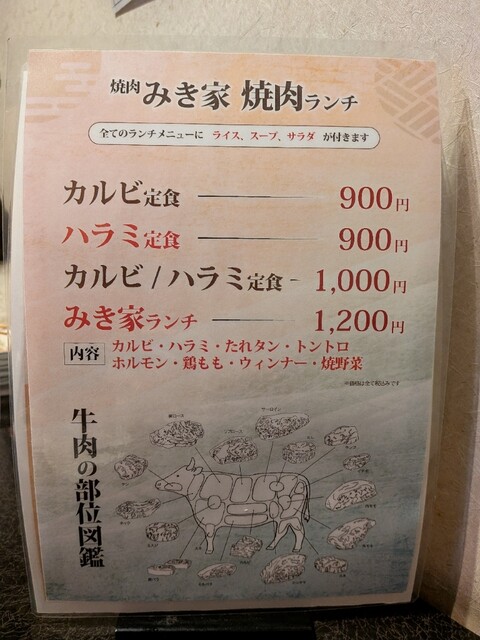 焼肉 みき家 焼肉ランチ
全てのランチメニューに ライス、スープ、サラダ が付きます
カルビ定食 900円
ハラミ定食 900円
カルビ / ハラミ定食 1,000円
みき家ランチ 1,200円
内容 カルビ・ハラミ・たれタン・トントロ
ホルモン・鶏もも・ウィンナー・焼野菜
※価格は全て税込みです
牛肉の部位図鑑
サーロイン
リブロース
肩ロース